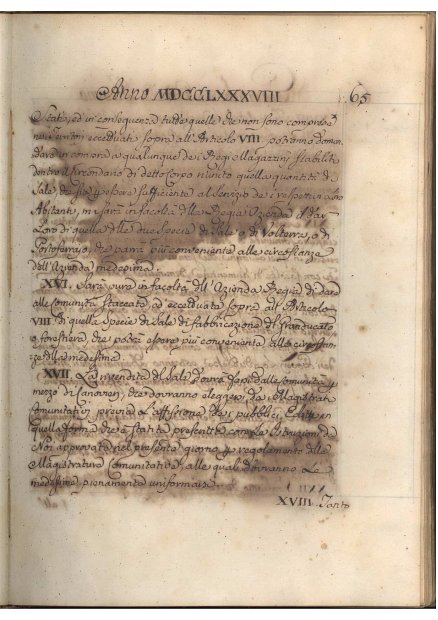 Anno MDCCLXXXVIII 65
Stato, ed in conseguenza tutte quelle che non sono comprese
nei eccettuati sopra all'Articolo VIII. potranno doman
dare in comora a qualunque dei Regi Magazzini stabiliti
dentro il circondario di detto Corpo munito quella quantità di
Sale, che possa essere sufficiente al servizio dei respettivi
Abitanti, mi sarà in facoltà della Regia Azienda il dar
Loro di quella delle due specie di Sale o di Volterra, o di
Portoferraio, che parrà più conveniente alle circostanze
dell'Azienda medesima.
XVI. Sarà pure in facoltà dell'Azienda Regia di dare
alle Comunità staccate, ed eccettuate sopra all'Articolo
VIII di quella specie di Sale di fabbricazione del Granducato
o forestiera, che potrà essere più conveniente alle circostan-
ze della medesima.
XVII. La rivendita del Sale dovrà farsi dalle comunità per
mezzo di Canovieri, che dovranno eleggersi dai Magistrati
Comunitativi previa l'affissione dei pubblici Editti in
quella forma che è stata prescritta con le Istruzioni da
Noi approvate nel presente giorno per regolamento delle
Magistrature Comunitative, alle quali dovranno Le
medesime pienamente uniformarsi.
XVIII. Tanto